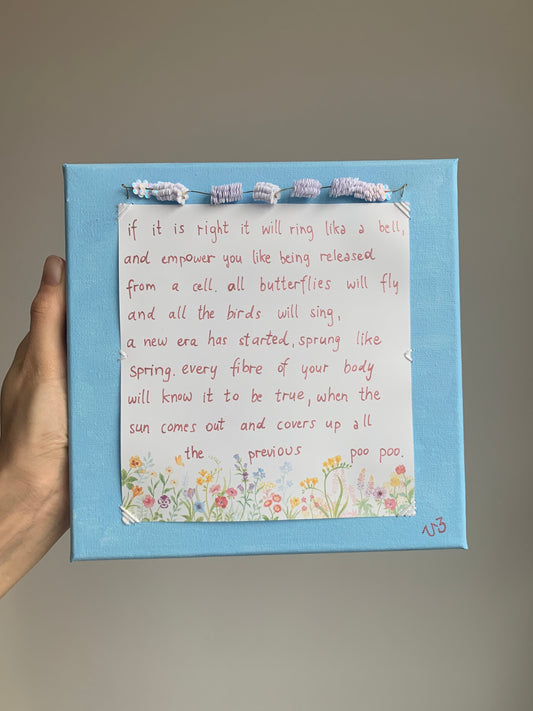 if it is right it will ring lika a bell,
and empower you like being released
from a cell. all butterflies will fly
and all the birds will sing,
a new era has started, sprung like
spring. every fibre of your body
will know it to be true, when the
sun comes out and covers up all
the previous poo poo.